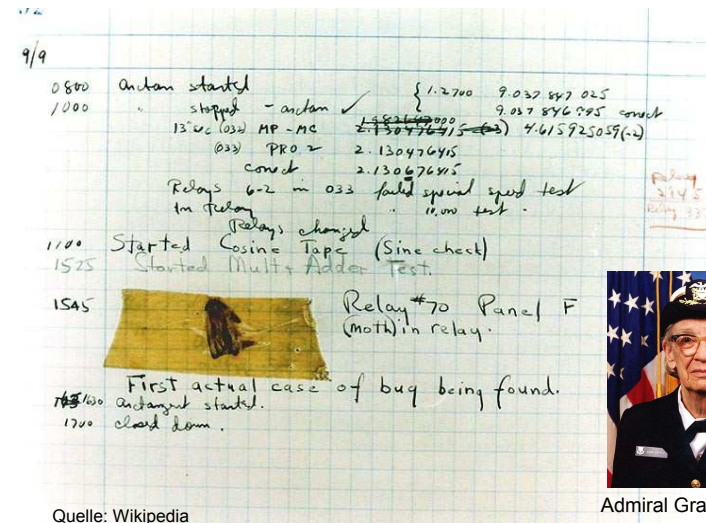 9/9
0800 Antan started
1000 " stopped - antan ✓ { 1.2700 9.037 847 025
9.037 846 795 correct
13" uc (032) MP - MC 2.130476415 (-3) 4.615925059(-2)
(033) PRO 2 2.130476415
correct 2.130676415
Relays 6-2 in 033 failed special speed test
In Relay " 10,000 test .
Relays changed
1100 Started Cosine Tape (Sine check)
1525 Started Mult + Adder Test.
1545 Relay #70 Panel F
(moth) in relay.
First actual case of bug being found.
1630 antangent started.
1700 closed down .
Relay
Relay 33
Quelle: Wikipedia
Admiral Gra